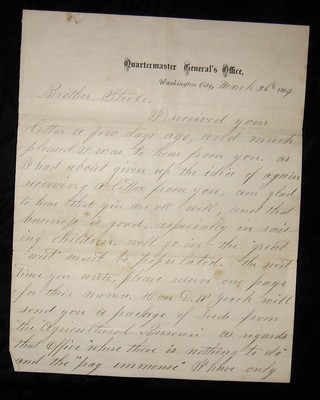 Quartermaster General's Office,
Washington City, March 26th 1864
Brother Steele.
I received your
letter a few days ago, and much
pleased I was to hear from you. as
I had about given up the idea of again
receiving a letter from you. am glad
to hear that you are all well, and that
buisness is good, especially in rais-
ing children. well go in the "great
west" must be populated. the next
time you write, please reserve one page
for their names. Hon D. W. Gooch will
send you a package of Seeds from
the Agricultural Bureau as regards
that Office "where there is nothing to do"
and the "pay immense" I have only